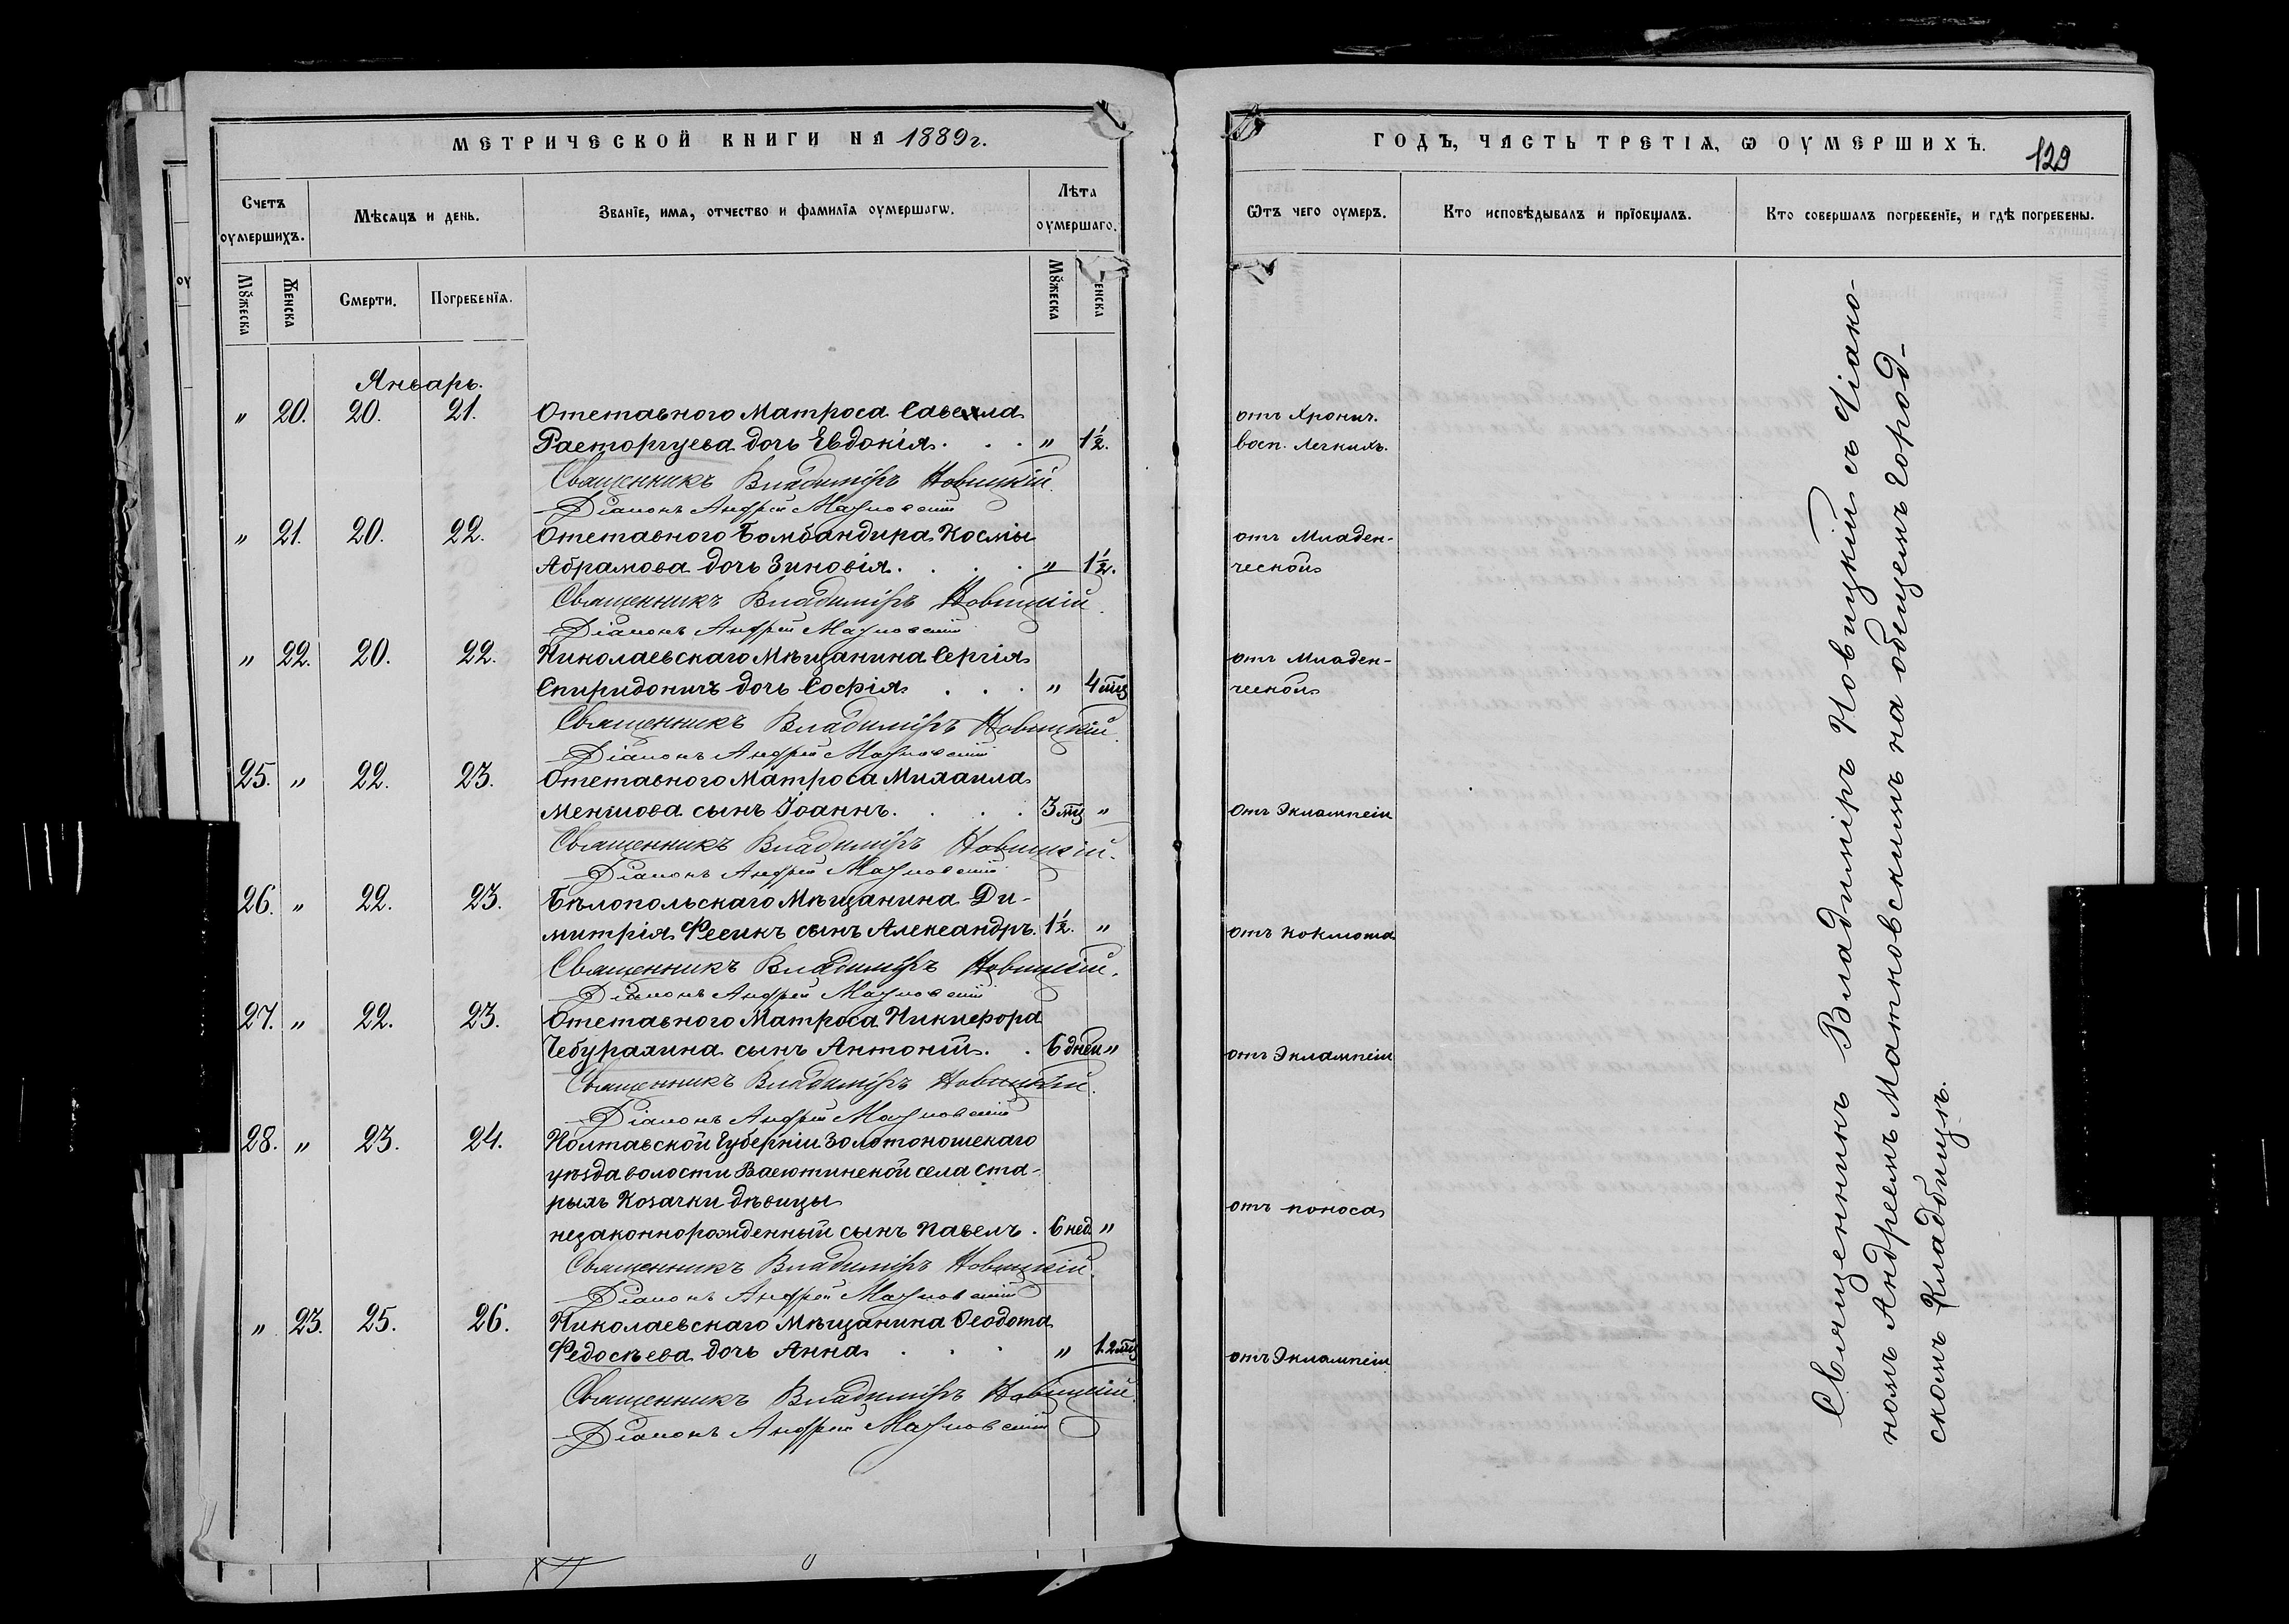 МЕТРИЧЕСКОЙ КНИГИ НА 1889 г.
Счетъ оумершихъ.
Мѣсяцъ и день.
Званїе, имя, отчество и фамилїя оумершагѡ.
Лѣта оумершаго.
Мꙋжеска
Женска
Смерти.
Погребенїя.
Мꙋжеска
енска
Январь.
" 20. 20. 21. Отставного Матроса Савелла
Расторгуева дочь Евдокія. . . . " 1½.
Священникъ Владиміръ Новицкій
Діаконъ Андрей Матновскій
" 21. 20. 22. Отставного Бомбандира Космы
Абрамова дочь Зиновія. . . . " 1½.
Священникъ Владиміръ Новицкій.
Діаконъ Андрей Матновскій
" 22. 20. 22. Николаевскаго Мѣщанина Сергія
Спиридоничъ дочь Софія . . . " 4 мц
Священникъ Владиміръ Новицкій.
Діаконъ Андрей Матновскій
25. " 22. 23. Отставного Матроса Михаила
Меншова сынъ Іоаннъ. . . . 3 мц "
Священникъ Владиміръ Новицкій.
Діаконъ Андрей Матновскій
26. " 22. 23. Бѣлопольскаго Мѣщанина Ди-
митрія Фесикъ сынъ Александръ. 1½. "
Священникъ Владиміръ Новицкій.
Діаконъ Андрей Матновскій
27. " 22. 23. Отставного Матроса Никифора
Чебурахина сынъ Антоній. . 6 дней "
Священникъ Владиміръ Новицкій.
Діаконъ Андрей Матновскій
28. " 23. 24. Полтавской Губерніи Золотоношскаго
уѣзда волости Васютинской села Ста-
рыхъ Козачки дѣвицы
незаконнорожденный сынъ Павелъ . 6 нед. "
Священникъ Владиміръ Новицкій.
Діаконъ Андрей Матновскій
" 23. 25. 26. Николаевскаго Мѣщанина Ѳеодота
Федосѣева дочь Анна . . . " 1. 2 мц
Священникъ Владиміръ Новицкій
Діаконъ Андрей Матновскій
ГОДЪ, ЧАСТЬ ТРЕТІѦ, Ѡ ОУМЕРШИХЪ.
129
Ѿтъ чего оумеръ.
Кто исповѣдывалъ и прїобщалъ.
Кто совершалъ погребенїе, и гдѣ погребены.
отъ Хронич.
восп. Легкихъ.
отъ Младен-
ческой
отъ Младен-
ческой
отъ Эклампсіи
отъ коклюша
отъ Эклампсіи
отъ поноса
отъ Эклампсіи
Священникъ Владиміръ Новицкій съ Діако-
номъ Андреемъ Матновскимъ на общемъ город-
скомъ Кладбищѣ.